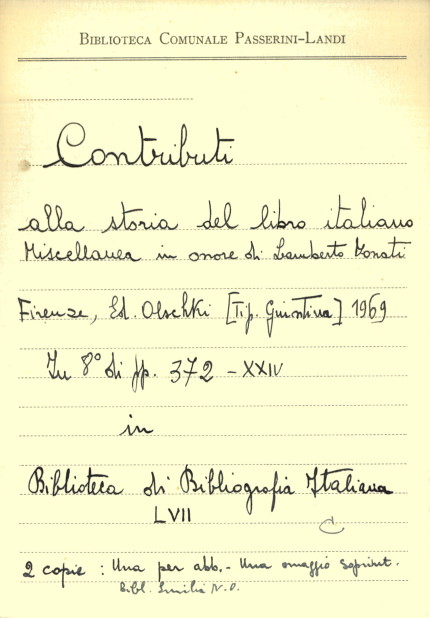 BIBLIOTECA COMUNALE PASSERINI-LANDI
Contributi
alla storia del libro italiano
Miscellanea in onore di Lamberto Donati
Firenze, Ed. Olschki [Tip. Giuntina] 1969
In 8° di pp. 372 - XXIV
in
Biblioteca di Bibliografia Italiana
LVII
C
2 copie : Una per abb. - Una omaggio Soprint.
Bibl. Emilia N.O.